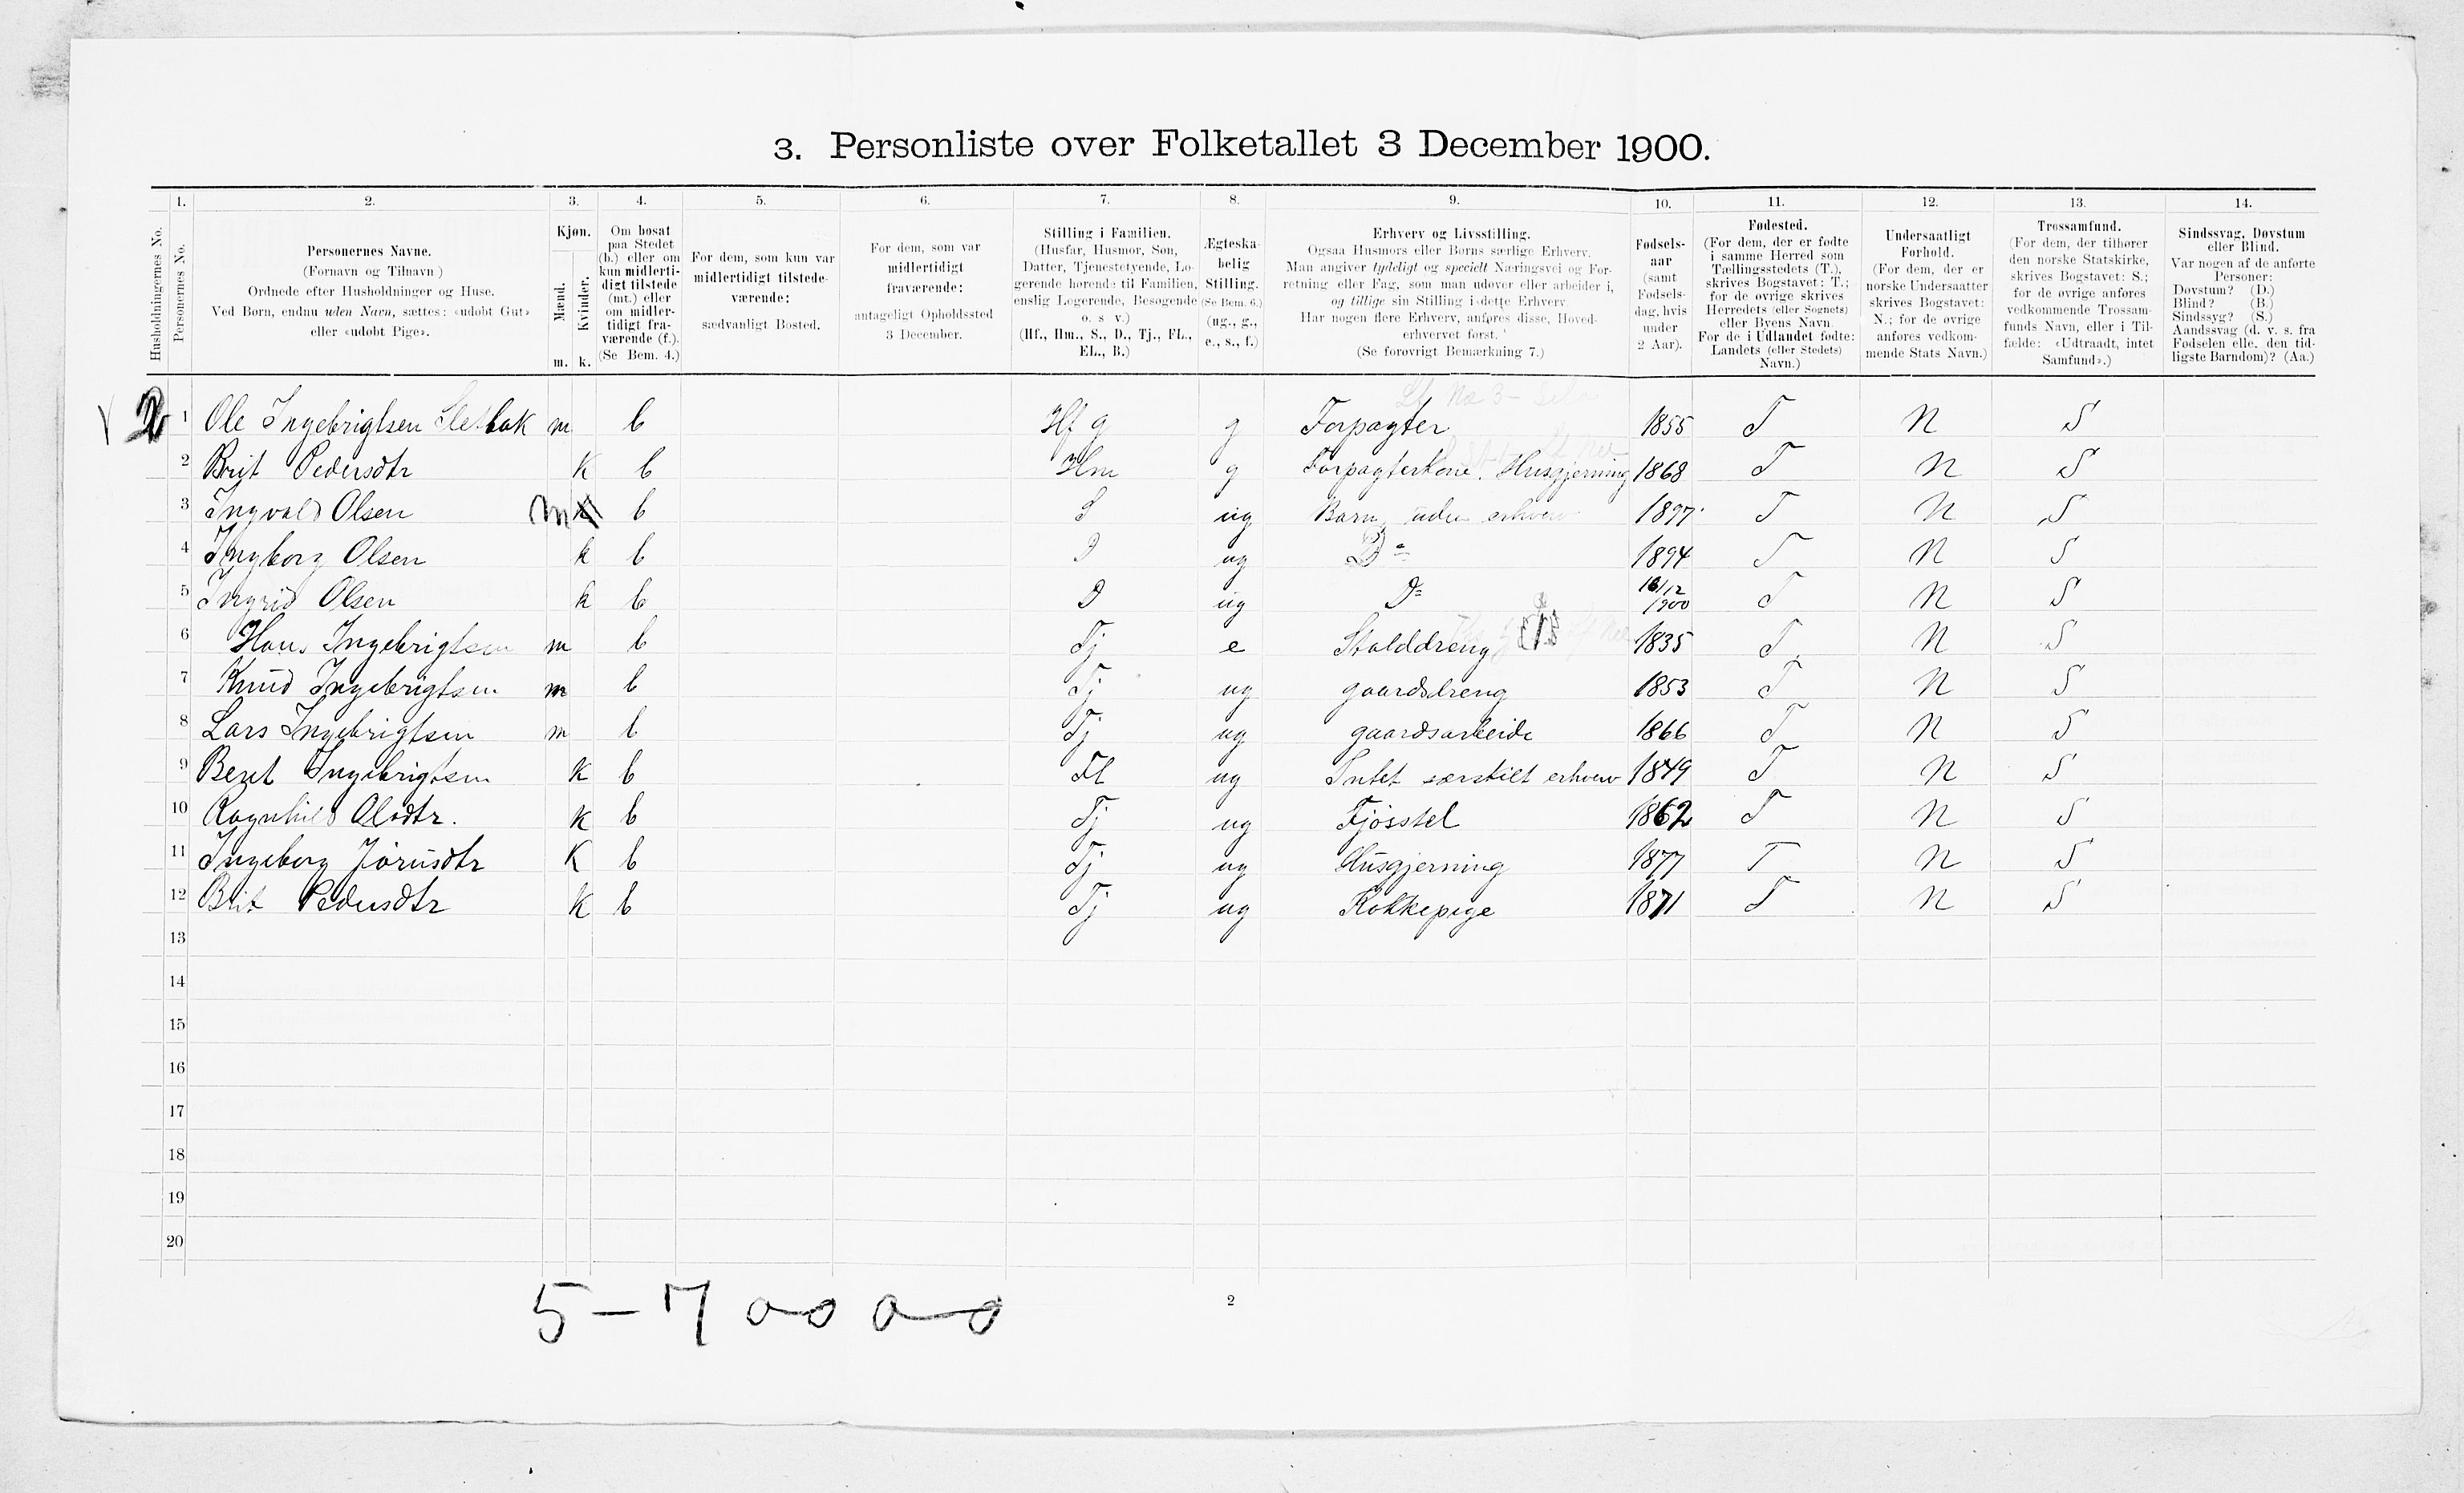 3. Personliste over Folketallet 3 December 1900.
1. 2. 3. 4. 5. 6. 7. 8. 9. 10. 11. 12. 13. 14.
Husholdningernes No.
Personernes No.
Personernes Navne.
(Fornavn og Tilnavn)
Ordnede efter Husholdninger og Huse.
Ved Børn, endnu uden Navn, sættes: «udøbt Gut»
eller «udøbt Pige».
Kjøn.
Mænd.
Kvinder.
m. k.
Om bosat
paa Stedet
(b.) eller om
kun midlerti-
digt tilstede
(mt.) eller
om midler-
tidigt fra-
værende (f.).
(Se Bem. 4.)
For dem, som kun var
midlertidigt tilstede-
værende:
sædvanligt Bosted.
For dem, som var
midlertidigt
fraværende:
antageligt Opholdssted
3 December.
Stilling i Familien.
(Husfar, Husmor, Søn,
Datter, Tjenestetyende, Lo-
gerende hørende til Familien,
enslig Logerende, Besøgende
o. s. v.)
(Hf., Hm., S., D., Tj., FL.,
EL., B.)
Ægteska-
belig
Stilling.
(Se Bem. 6.)
(ug., g.,
e., s., f.)
Erhverv og Livsstilling.
Ogsaa Husmors eller Børns særlige Erhverv.
Man angiver tydeligt og specielt Næringsvei og For-
retning eller Fag, som man udøver eller arbeider i,
og tillige sin Stilling i dette Erhverv
Har nogen flere Erhverv, anføres disse, Hoved-
erhvervet først.
(Se forøvrigt Bemærkning 7.)
Fødsels-
aar
(samt
Fødsels-
dag, hvis
under
2 Aar).
Fødested.
(For dem, der er fødte
i samme Herred som
Tællingsstedets (T.),
skrives Bogstavet: T.;
for de øvrige skrives
Herredets (eller Sognets)
eller Byens Navn.
For de i Udlandet fødte:
Landets (eller Stedets)
Navn.)
Undersaatligt
Forhold.
(For dem, der er
norske Undersaatter
skrives Bogstavet:
N.; for de øvrige
anføres vedkom-
mende Stats Navn.)
Trossamfund.
(For dem, der tilhører
den norske Statskirke,
skrives Bogstavet: S.;
for de øvrige anføres
vedkommende Trossam-
funds Navn, eller i Til-
fælde: «Udtraadt, intet
Samfund».)
Sindssvag, Døvstum
eller Blind.
Var nogen af de anførte
Personer:
Døvstum? (D.)
Blind? (B.)
Sindssyg? (S.)
Aandssvag (d. v. s. fra
Fødselen elle. den tid-
ligste Barndom)? (Aa.)
2 1 Ole Ingebrigtsen Sletbak m b Hf g g Forpagter 1855 T N S
2 Brit Pedersdtr K b Hm g Forpagterkone. Husgjerning 1868 T N S
3 Ingvald Olsen m b S ug Barn uden erhverv 1897 T N S
4 Ingborg Olsen k b D ug Do 1894 T N S
5 Ingrid Olsen k b D ug Do 16/12 1900 T N S
6 Hans Ingebrigtsen m b Tj e Stalddreng 1835 T N S
7 Knud Ingebrigtsen m b Tj ug gaardsdreng 1853 T N S
8 Lars Ingebrigtsen m b Tj ug gaardsarbeide 1866 T N S
9 Berit Ingebrigtsen K b Fl ug Intet særskilt erhverv 1849 T N S
10 Ragnhild Olsdtr. K b Tj ug Fjøsstel 1862 T N S
11 Ingeborg Jörnsdtr K b Tj ug Husgjerning 1877 T N S
12 Brit Pedersdtr K b Tj ug Kokkepige 1871 T N S
13
14
15
16
17
18
19
20
5 - 7 0-0 0-0
2